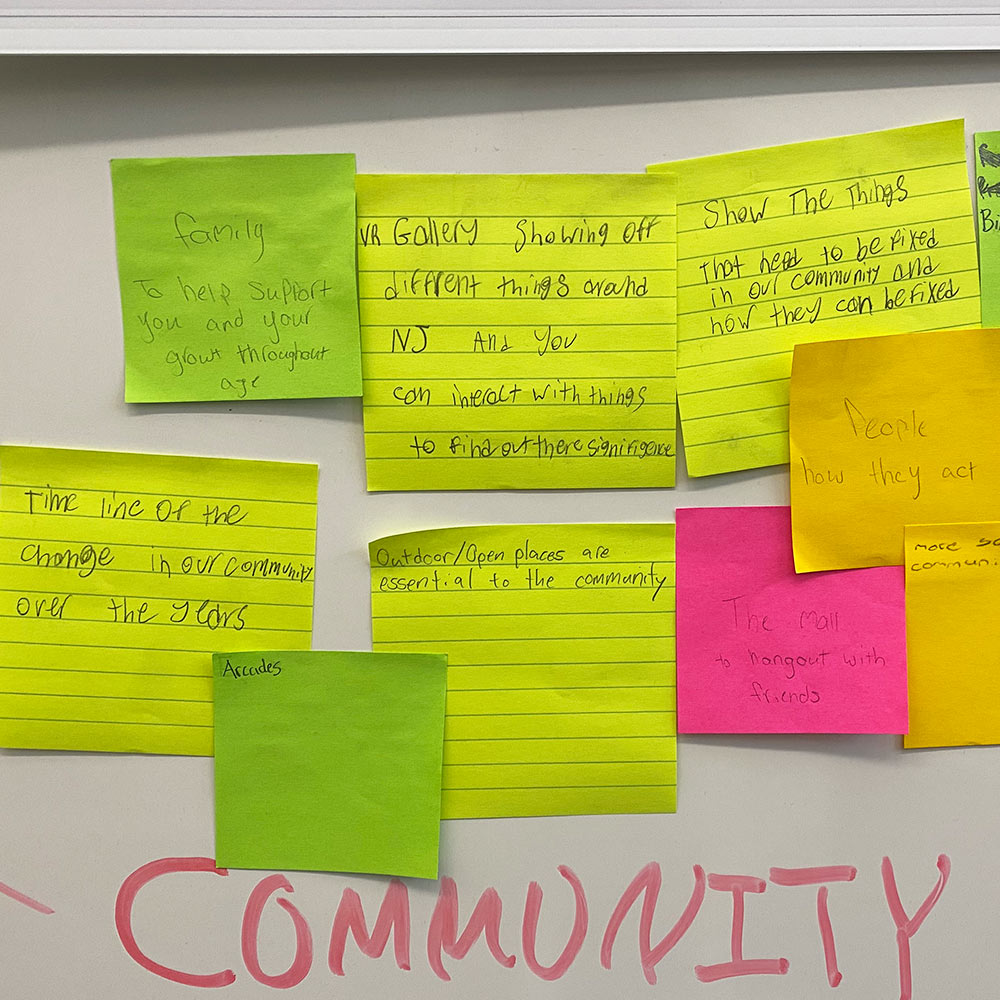 family
To help support
you and your
growt throughout
age
VR Gallery Showing off
different things around
NJ And You
can interact with things
to find out there signifigence
Show The Things
that need to be fixed
in our community and
how they can be fixed
Bi
People
how they act
Time line of the
Change in our community
over the years
Outdoor/Open places are
essential to the community
Arcades
The mall
to hangout with
friends
more
communi
COMMUNITY